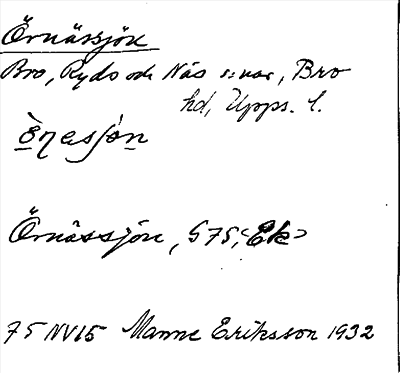 Örnässjön
Bro, Ryds och Näs s:nar, Bro
hd, Upps. l.
ö̀ɳasjón
Örnässjön, G 75, <Ek>
75 NV15 Manne Eriksson 1932